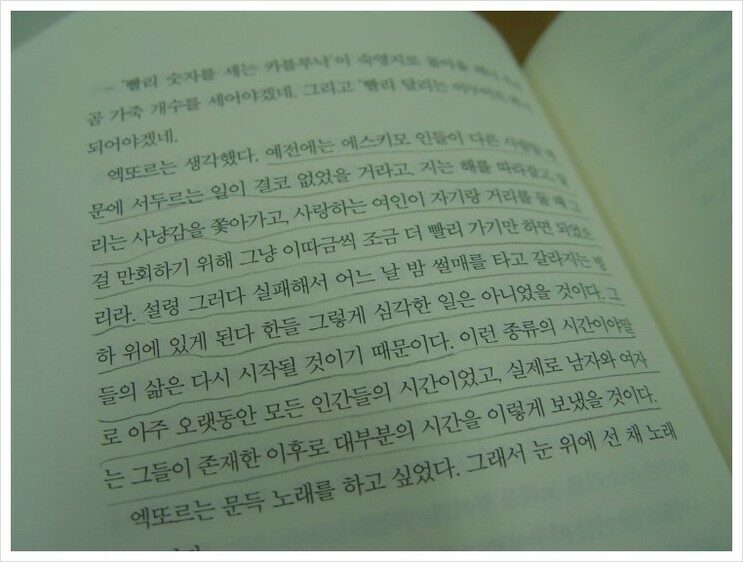 - '빨리 숫자를 세는 카블루낙'이 숙영지로 돌아올 때
곰 가죽 개수를 세어야겠네. 그리고 '빨리 달리는
되어야겠네.
엑또르는 생각했다. 예전에는 에스키모 인들이 다른 사람들 때
문에 서두르는 일이 결코 없었을 거라고. 지는 해를 따라잡고, 달
리는 사냥감을 쫓아가고, 사랑하는 여인이 자기랑 거리를 둘 때 그
걸 만회하기 위해 그냥 이따금씩 조금 더 빨리 가기만 하면 되었으
리라. 설령 그러다 실패해서 어느 날 밤 썰매를 타고 갈라지는 빙
하 위에 있게 된다 한들 그렇게 심각한 일은 아니었을 것이다. 그
들의 삶은 다시 시작될 것이기 때문이다. 이런 종류의 시간이야말
로 아주 오랫동안 모든 인간들의 시간이었고, 실제로 남자와 여자
는 그들이 존재한 이후로 대부분의 시간을 이렇게 보냈을 것이다.
엑또르는 문득 노래를 하고 싶었다. 그래서 눈 위에 선 채 노래